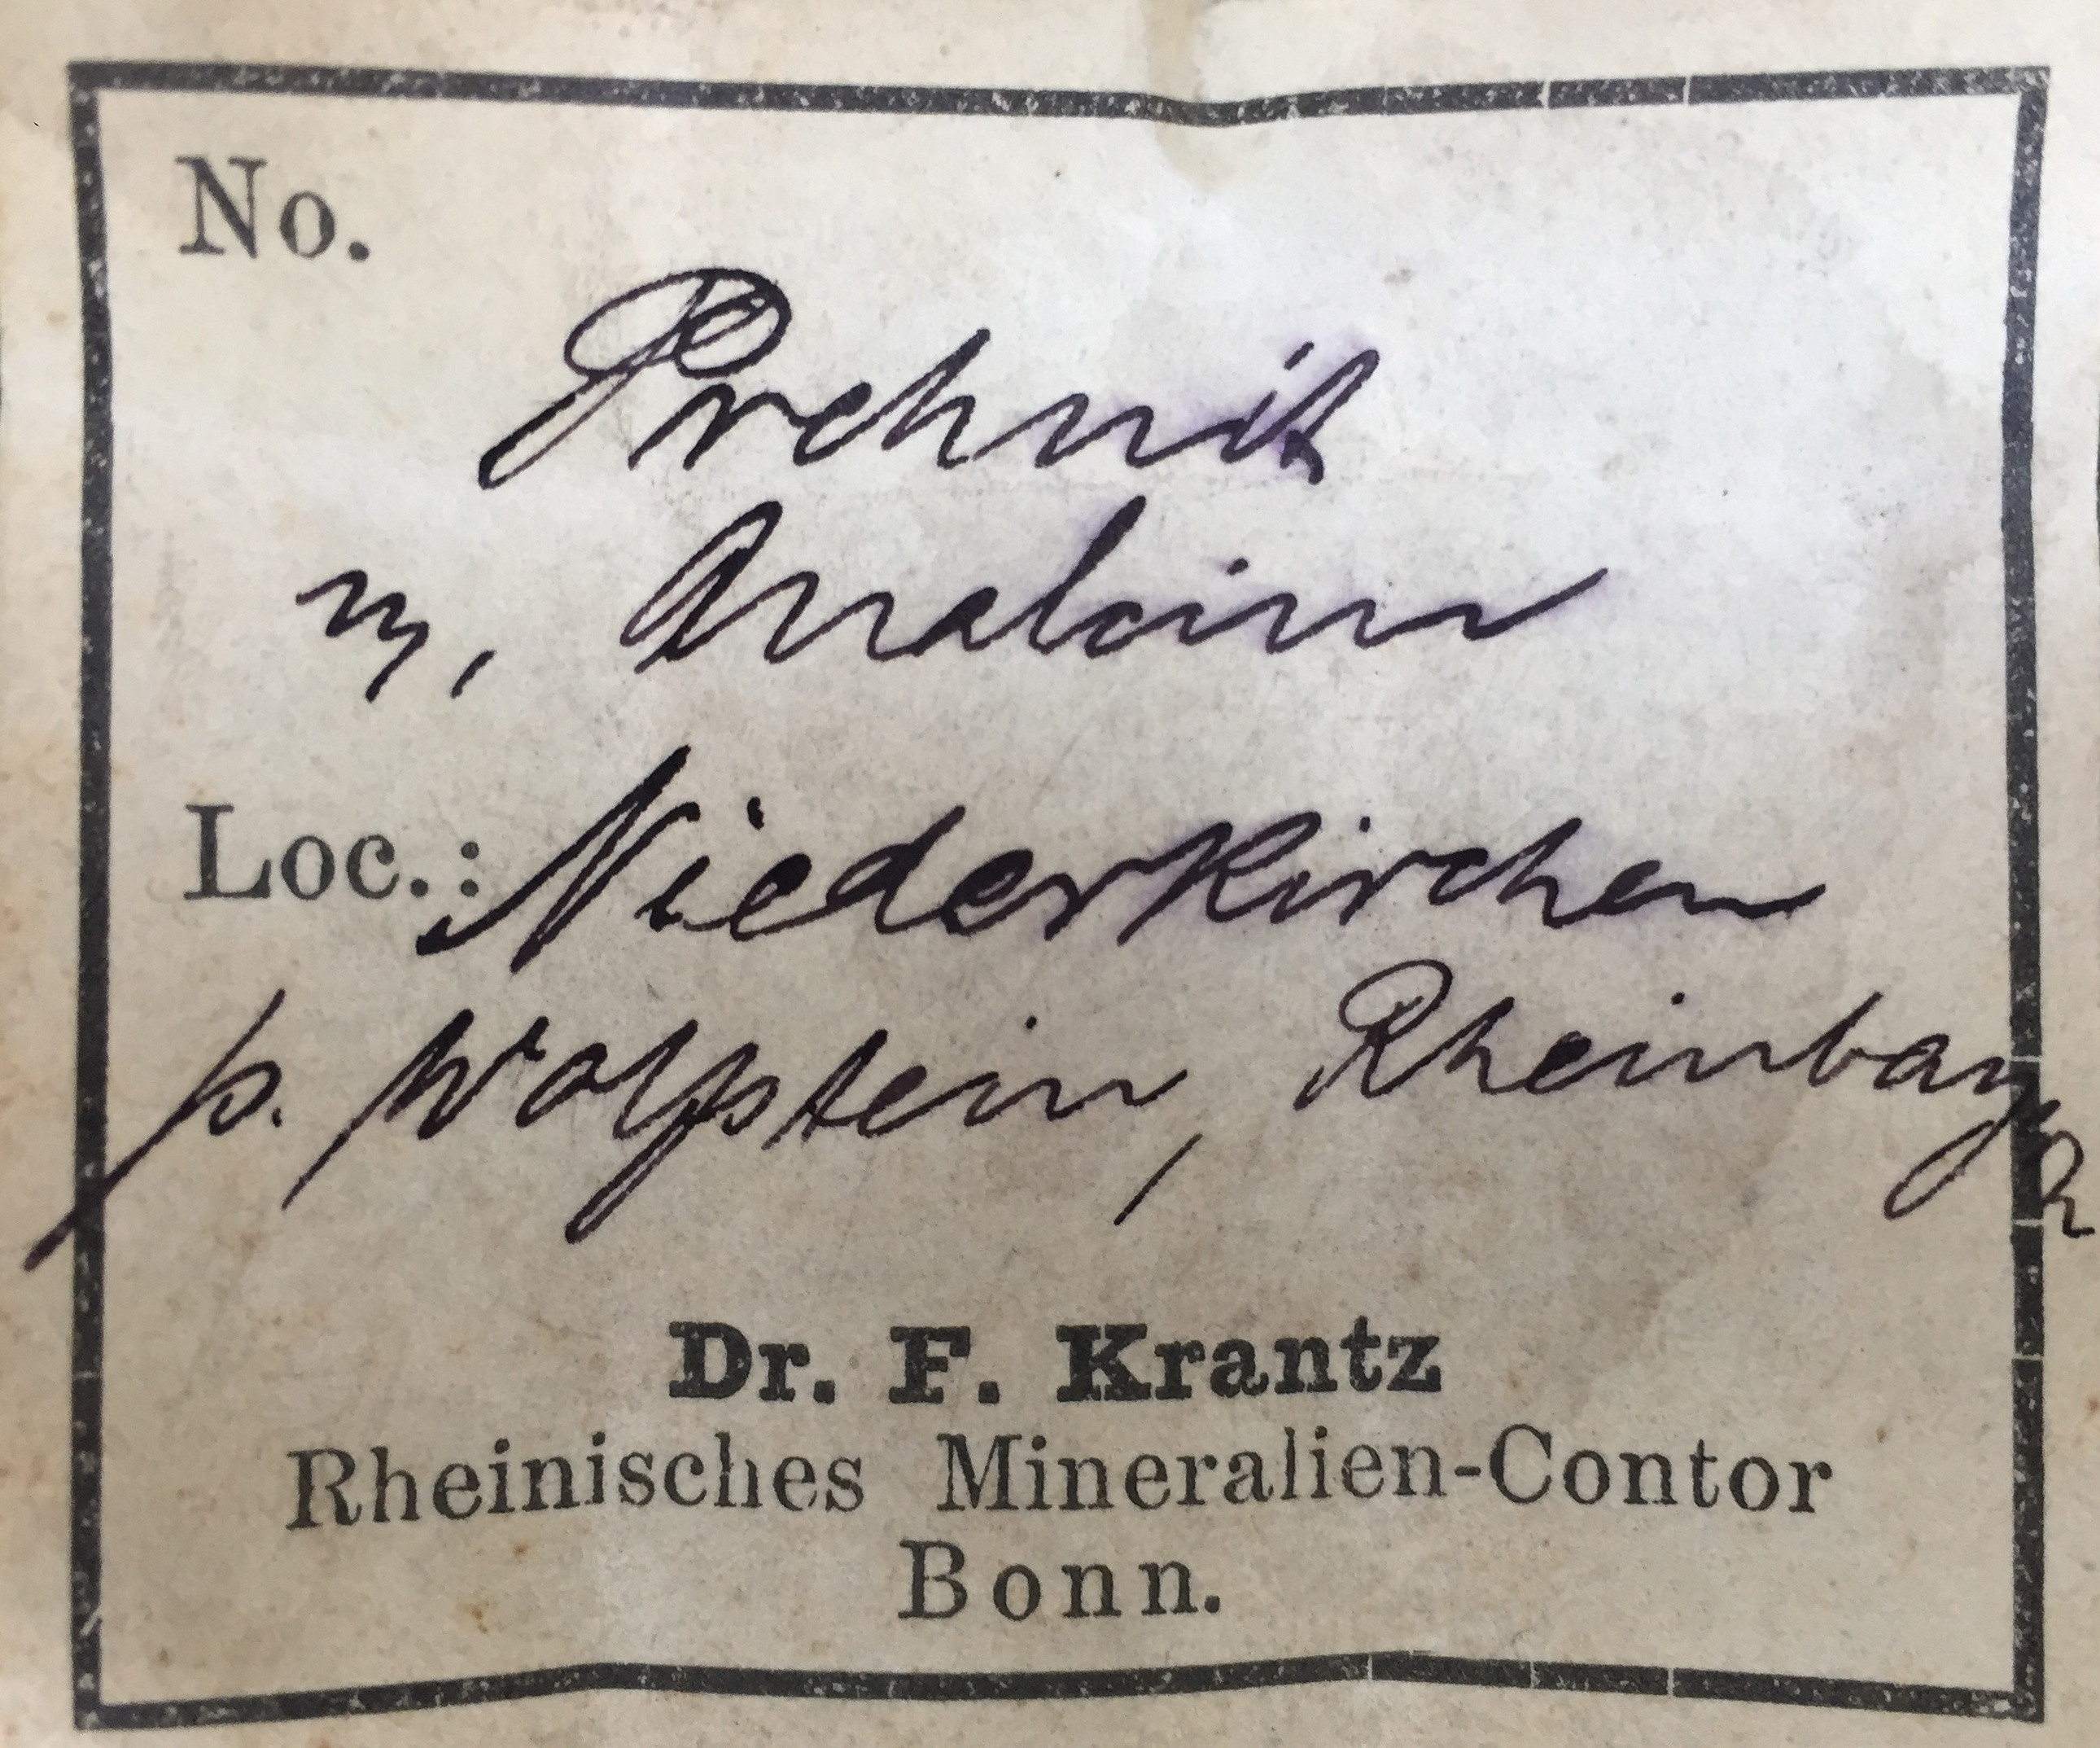 No.
Prehnit
m, Analcim
Loc.: Niederkirchen
b. Wolfstein, Rheinbayern
Dr. F. Krantz
Rheinisches Mineralien-Contor
Bonn.